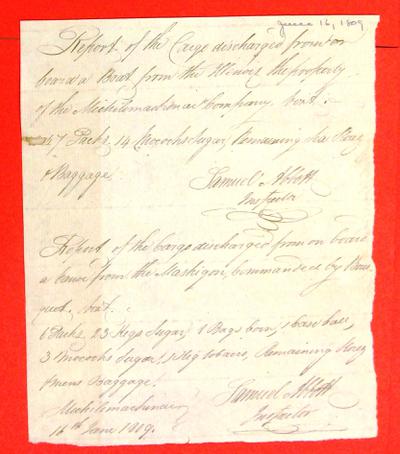 June 16, 1809
Report of the Cargo discharged from on
board a Boat from the Illinois the property
of the Michilimackinac Company, viz.:
Packs, 14 Mococks Sugar, Remaining Sea Stores
& Baggage.
Samuel Abbott
Inspector
Report of the Cargo discharged from on board
a canoe from the Maskigon, Commanded by Bous
quet, viz.:
6 Packs, 23 Kegs Sugar, 1 Bags Corn, 1
3 Mococks Sugar, 1 Keg tobacco, Remaining Stores
& mens Baggage.
Samuel Abbott
Inspector
Michilimackinac
16th June 1809.